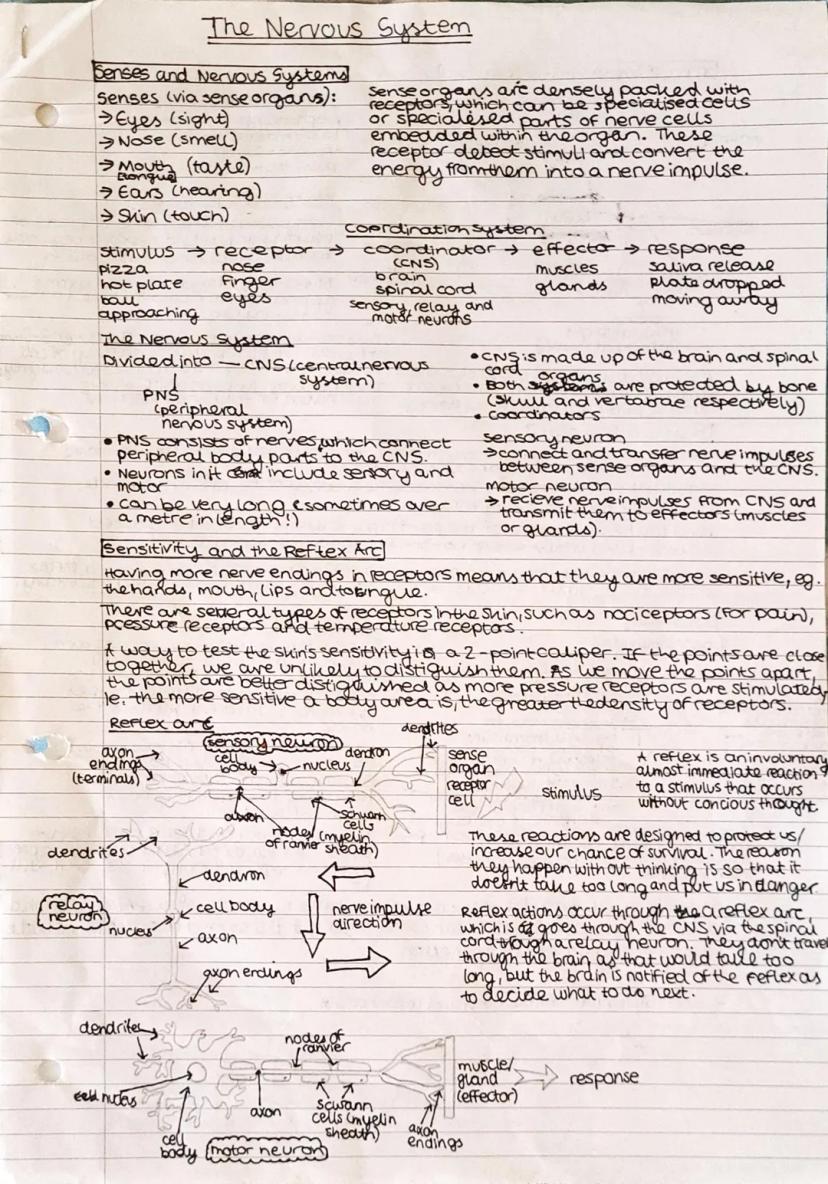 The Nervous System
Senses and Nervous Systems
Senses (via sense organs):
→ Eyes (sight)
→ Nose (smell)
→ Mouth (taste)
(tongue)
→ Ears (hearing)
→ Skin (touch)
Sense organs are densely packed with
receptors, which can be specialised cells
or specialised parts of nerve cells
embedded within the organ. These
receptor detect stimuli and convert the
energy from them into a nerve impulse.
Coordination System
stimulus → receptor → coordinator → effector → response
pizza
hot plate
ball
approaching
nose
finger
eyes
(CNS)
brain
spinal cord
sensory, relay and
motor neurons
muscles
glands
saliva release
plate dropped
moving away
The Nervous System
Divided into — CNS (central nervous
system)
PNS
(peripheral
nervous system)
• PNS consists of nerves, which connect
peripheral body parts to the CNS.
• Neurons in it include sensory and
motor
• can be very long (sometimes over
a metre in length!)
• CNS is made up of the brain and spinal
cord
organs
• Both systems are protected by bone
(skull and vertabrae respectively)
• coordinators
sensory neuron
→ connect and transfer nerve impulses
between sense organs and the CNS.
motor neuron
→ recieve nerve impulses from CNS and
transmit them to effectors (muscles
or glands).
Sensitivity and the Reflex Arc
Having more nerve endings in receptors means that they are more sensitive, eg.
the hands, mouth, lips and tongue.
There are several types of receptors in the skin, such as nociceptors (for pain),
pressure receptors and temperature receptors.
A way to test the skin's sensitivity is a 2-point caliper. If the points are close
together, we are unlikely to distiguish them. As we move the points apart,
the points are better distiguished as more pressure receptors are stimulated,
ie. the more sensitive a body area is, the greater the density of receptors.
Reflex arc
sensory neuron
axon
endings
(terminals)
cell
body
nucleus
dendron
dendrites
axon
nodes
of ranvier
schwann
cells
(myelin
sheath)
sense
organ
receptor
cell
stimulus
A reflex is an involuntary,
almost immediate reaction
to a stimulus that occurs
without concious thought.
dendrites
relay
neuron
dendron
cell body
nucleus
axon
axon endings
nerve impulse
direction
These reactions are designed to protect us/
increase our chance of survival. The reason
they happen without thinking is so that it
doesn't take too long and put us in danger.
Reflex actions occur through a reflex arc,
which is goes through the CNS via the spinal
cord trough a relay neuron. They don't travel
through the brain as that would take too
long, but the brain is notified of the reflex as
to decide what to do next.
dendrites
nucleus
cell
body
motor neuron
axon
nodes of
ranvier
scwann
cells (myelin
sheath)
axon
endings
muscle/
gland
(effector)
response